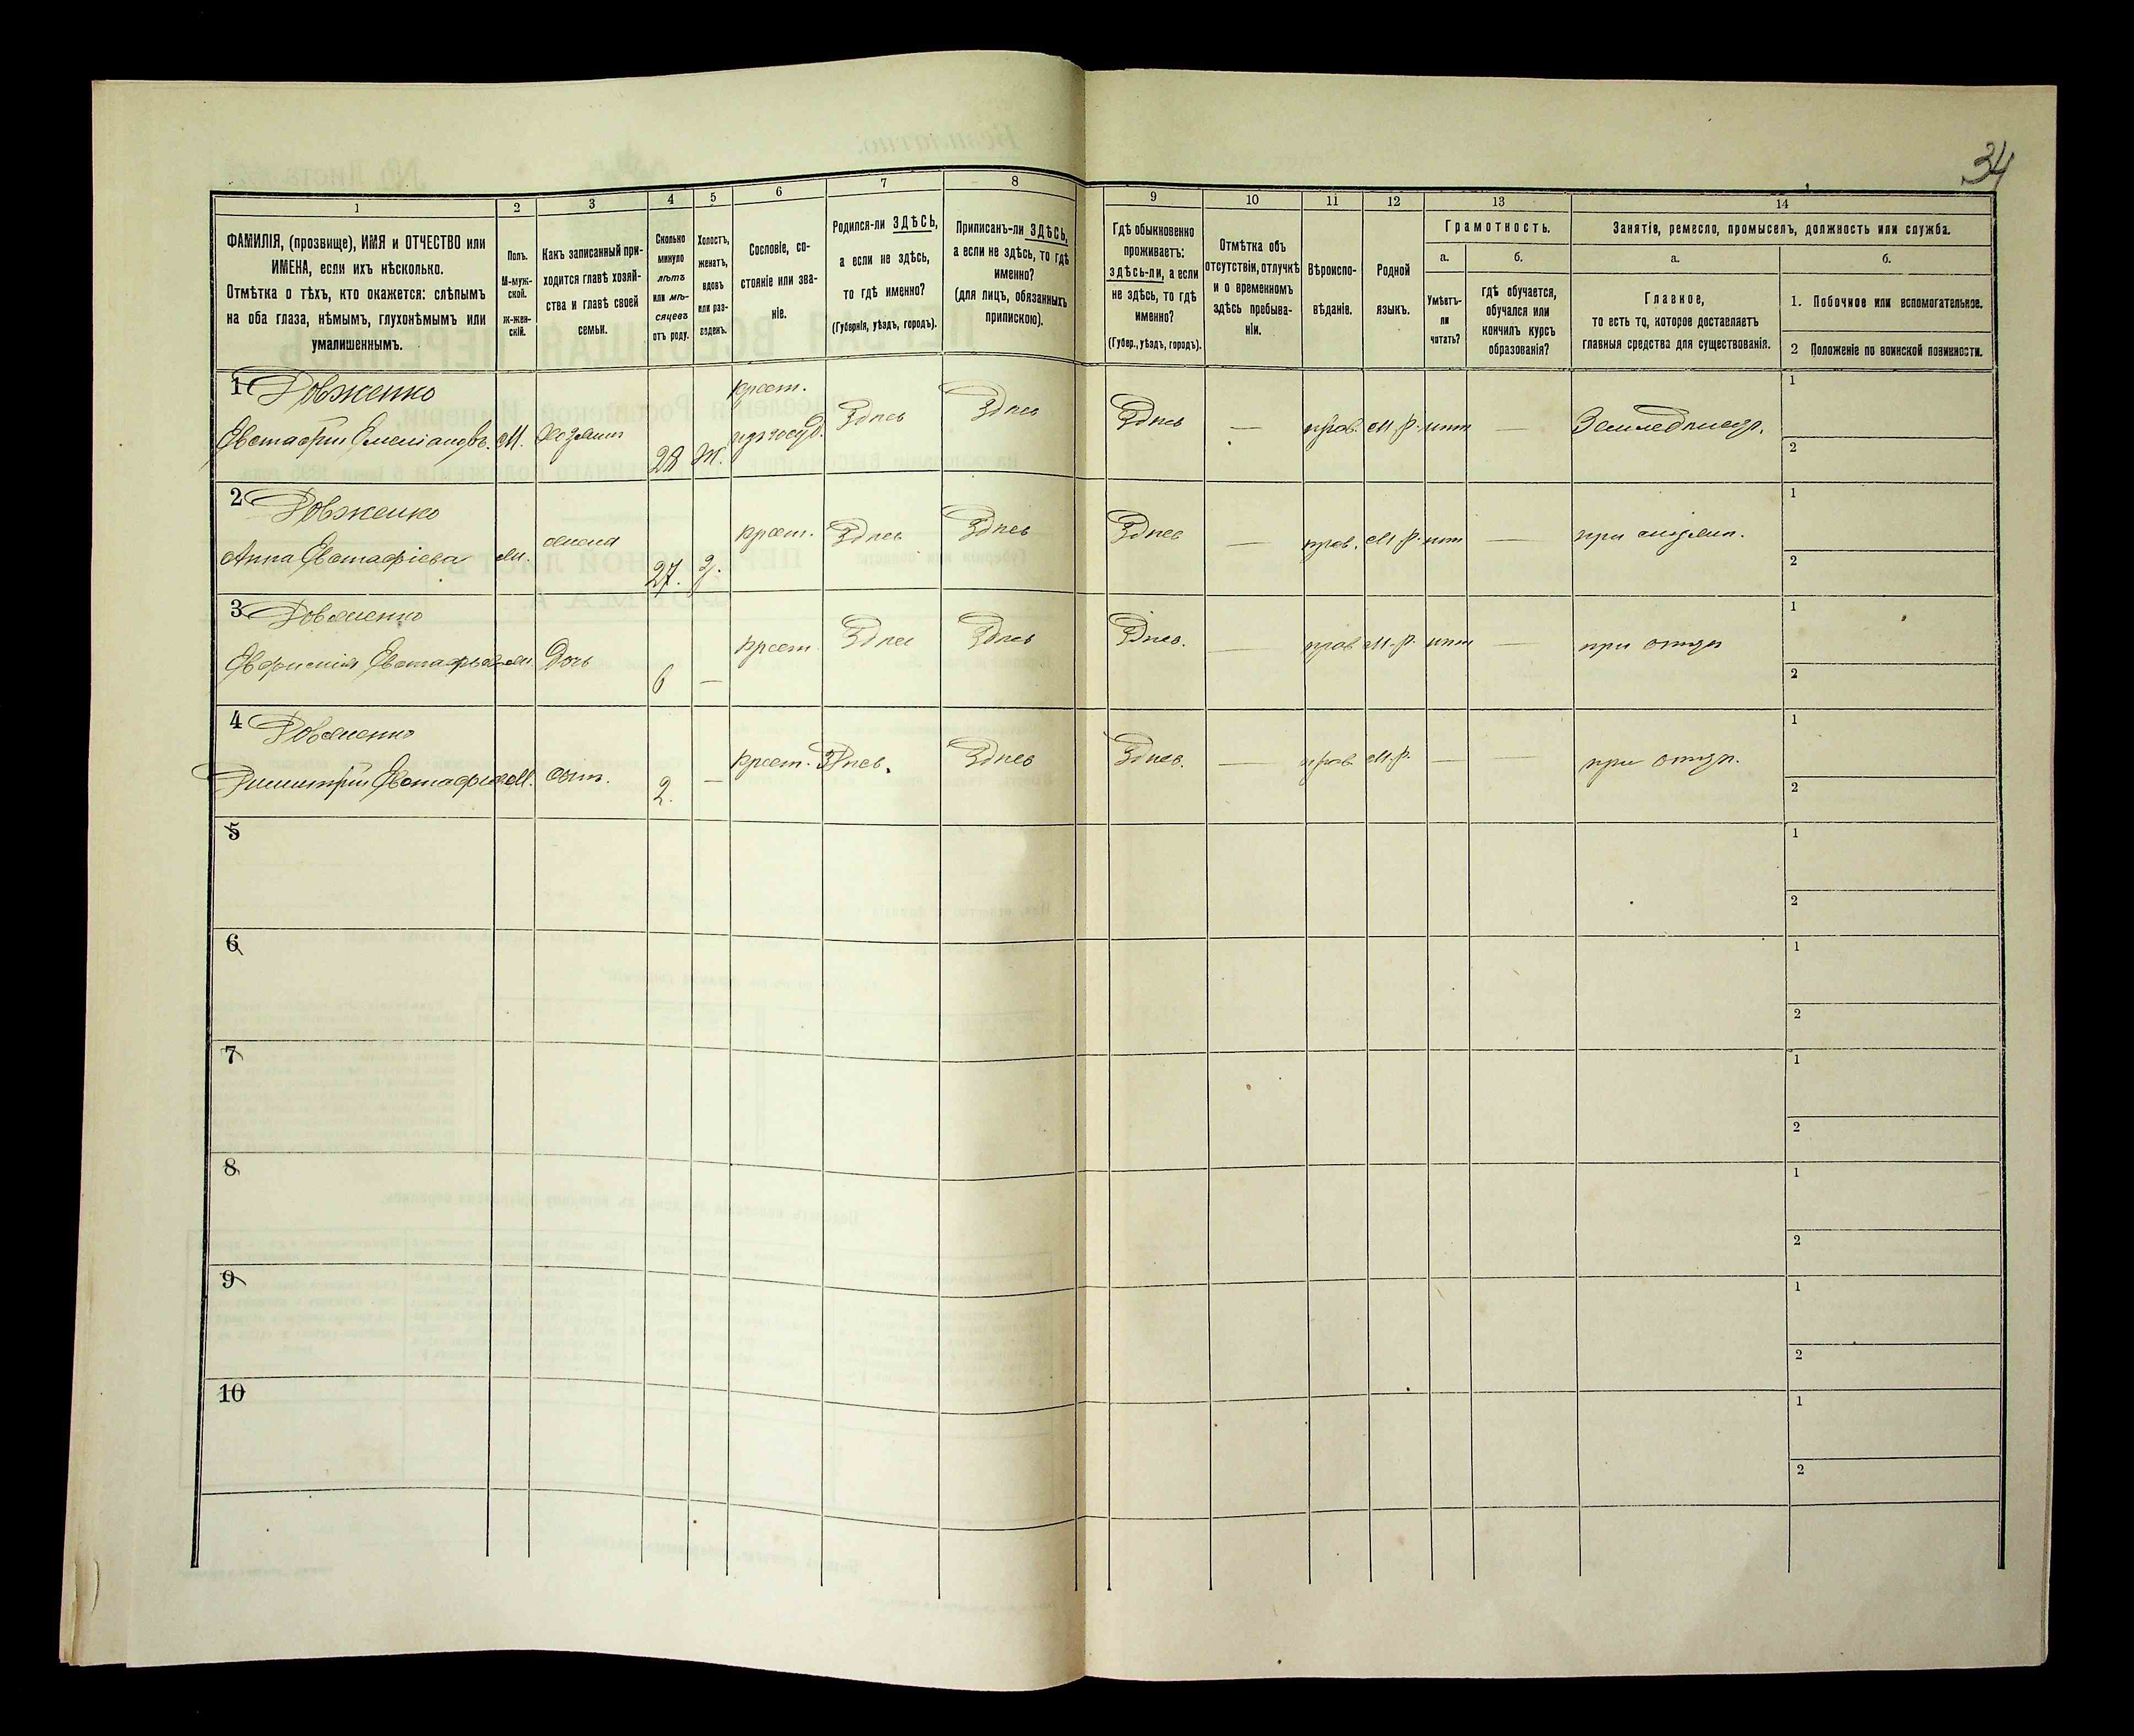 34
1 2 3 4 5 6 7 8 9 10 11 12 13 14
ФАМИЛІЯ, (прозвище), ИМЯ и ОТЧЕСТВО или
ИМЕНА, если ихъ нѣсколько.
Отмѣтка о тѣхъ, кто окажется: слѣпымъ
на оба глаза, нѣмымъ, глухонѣмымъ или
умалишеннымъ.
Полъ.
М-муж-
ской.
ж-жен-
скій.
Какъ записанный при-
ходится главѣ хозяй-
ства и главѣ своей
семьи.
Сколько
минуло
лѣтъ
или мѣ-
сяцевъ
отъ роду.
Холостъ,
женатъ,
вдовъ
или раз-
веденъ.
Сословіе, со-
стояніе или зва-
ніе.
Родился-ли ЗДѢСЬ,
а если не здѣсь,
то гдѣ именно?
(Губернія, уѣздъ, городъ).
Приписанъ-ли ЗДѢСЬ,
а если не здѣсь, то гдѣ
именно?
(для лицъ, обязанныхъ
припискою).
Гдѣ обыкновенно
проживаетъ:
здѣсь-ли, а если
не здѣсь, то гдѣ
именно?
(Губер., уѣздъ, городъ).
Отмѣтка объ
отсутствіи, отлучкѣ
и о временномъ
здѣсь пребыва-
ніи.
Вѣроиспо-
вѣданіе.
Родной
языкъ.
Грамотность.
а.
Умѣетъ-
ли
читать?
б.
гдѣ обучается,
обучался или
кончилъ курсъ
образованія?
Занятіе, ремесло, промыселъ, должность или служба.
а.
Главное,
то есть то, которое доставляетъ
главныя средства для существованія.
б.
1. Побочное или вспомогательное.
2 Положеніе по воинской повинности.
1 Довженко крест. 1
Евстафій Емеліановъ. М. Хозяинъ 28 Ж. изъ госуд. Здѣсь Здѣсь Здѣсь — прав. М.р. нѣтъ — Земледѣлец.
2
2 Довженко 1
Анна Евстафіева жена 27. З. крест. Здѣсь Здѣсь Здѣсь — прав. М.р. нѣтъ — при
2
3 Довженко 1
Евфимія Дочь 6 — крест. Здѣсь Здѣсь Здѣсь. — прав М.р. нѣтъ — при отцѣ
2
4 Довженко 1
Димитрій М. сынъ. 2. — крест. Здѣсь. Здѣсь Здѣсь. — прав. М.р. — — при отцѣ.
2
5 1
2
6 1
2
7 1
2
8 1
2
9 1
2
10 1
2